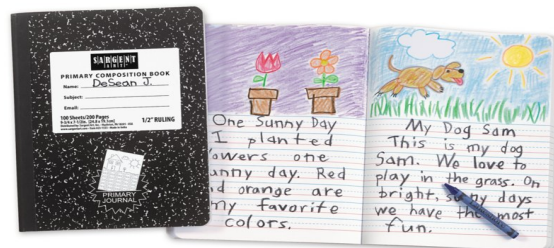 SARGENT
ART
PRIMARY COMPOSITION BOOK
Name: DeSean J.
Subject:
Email:
100 Sheets/200 Pages
1/2" RULING
PRIMARY
JOURNAL
One Sunny Day
I planted
owers one
unny day. Red
d orange are
my favorite
colors.
My Dog Sam
This is my dog
Sam. We love to
play in the grass. On
bright, s ny days
we have the most
fun.